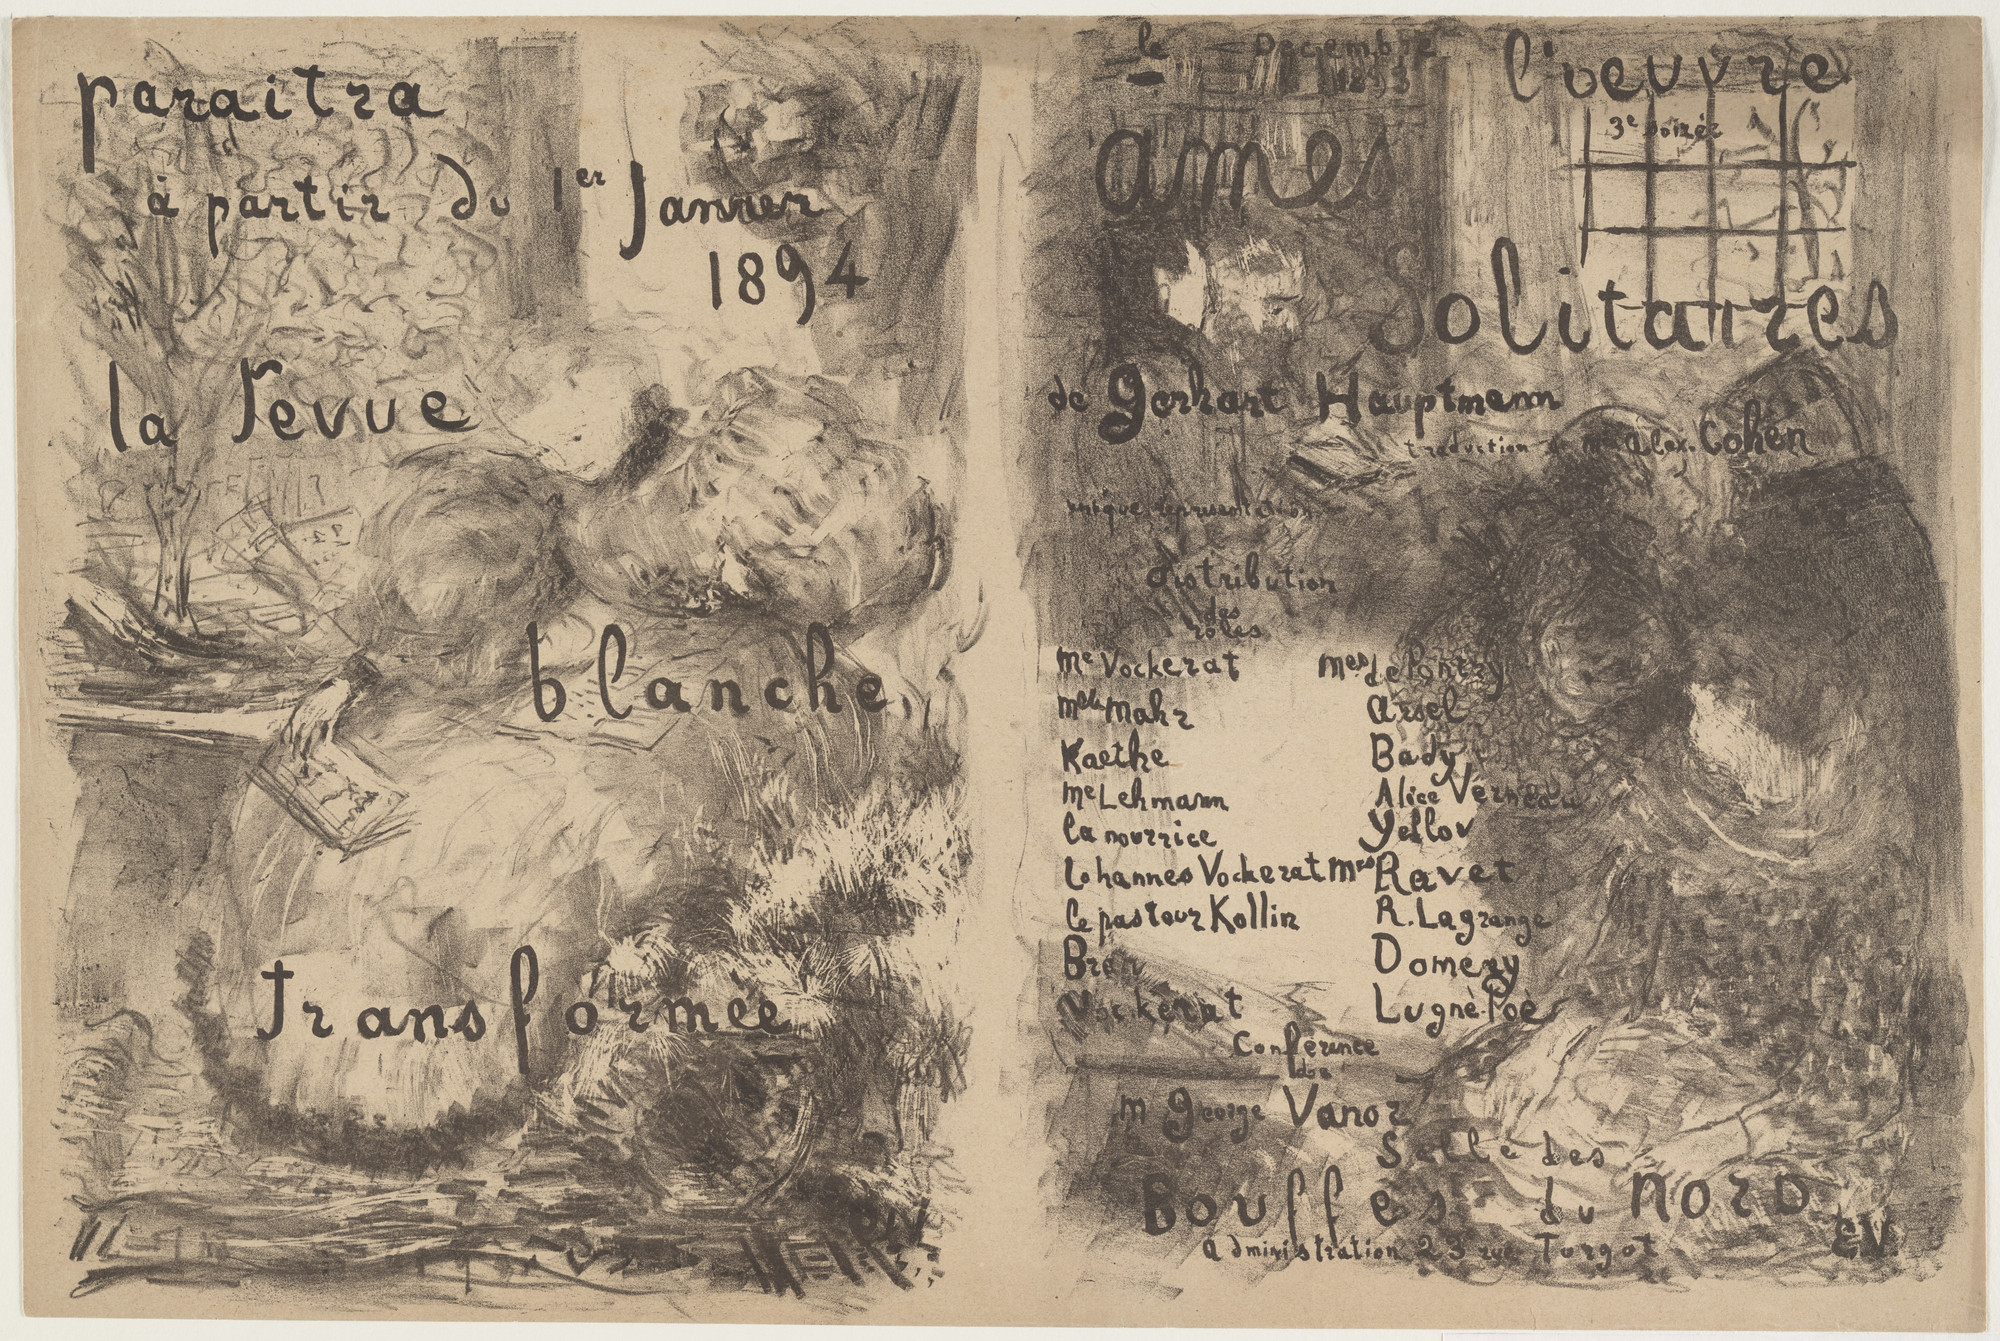 paraitra
à partir du 1er Janvier
1894
la revue
blanche
transformée
le Decembre
1893
l'oeuvre
3e soirée
ames
Solitaires
de Gerhart Hauptmann
traduction de Mr Alex. Cohen
unique représentation
distribution
des
rôles
Me Vockerat Mes de Pontry
Melle Mahr Arsel
Kaethe Bady
Me Lehmann Alice Verneau
la nourrice Yellov
Iohannes Vockerat Mrs Ravet
le pasteur Kollin R. Lagrange
Bran Domery
Vockerat Lugné-Poë
Conférence
de
M George Vanor
Salle des
Bouffes du Nord
Administration 23 rue Turgot
E.V.